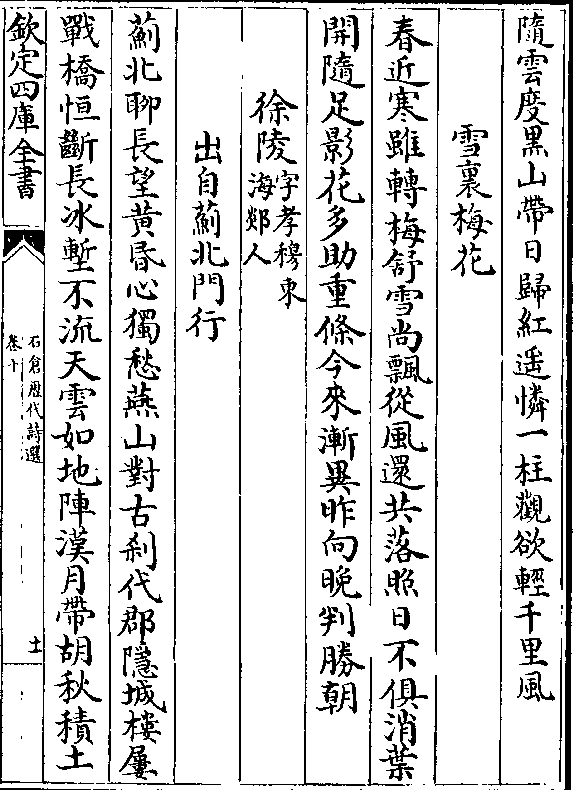 隨雲度黒山帶日歸紅遥憐一柱觀欲輕千里風
雪裏梅花
春近寒雖轉梅舒雪尚飄從風還共落照日不俱消葉
開隨足影花多助重條今來漸異昨向晚判勝朝
徐陵字孝穆東海郯人
出自薊北門行
薊北聊長望黄昏心獨愁燕山對古刹代郡隱城樓屢
戰橋恒斷長冰塹不流天雲如地陣漢月帶胡秋積土
欽定四庫全書
石倉歴代詩選
卷十
十一